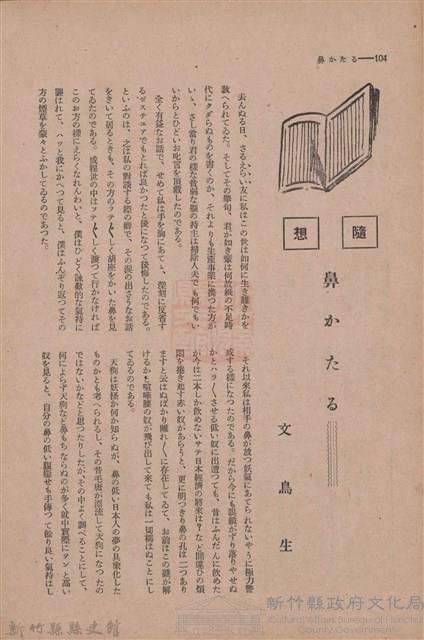 鼻かたる――104
隨想
鼻かたる
文鳥生
去んぬる日、さるえらい友に私はこの世は如何に生き難きかを
敎へられてゐた。そしてその擧句、君が如き輩は何故紙の不足時
代にクダらぬものを書くのか、それよりも生產事業に携つた方が
いゝ、さし當り君の樣な貧弱な顎の持主は掃除人夫でも何でもい
いからとひどいお叱言を頂戴したのである。
全く有益なお話で、せめて私は手を胸にあてゝ、深刻に反省す
るゼスチュアでもとれば良かつたと後になつて後悔したのである。
といふのは、之は私の對談する際の癖で、その淚の出さうなお話
をきいて居るときも、その方のフテ〴〵しく胡座をかいた鼻を見
てゐたのである。成程世の中はフテ〴〵しく渡つて行かなければ
このお方の樣にえらくなれんわいと、僕はひどく詠歎的な氣持に
襲はれて、ハッと我にかへつて見ると、僕はふんぞり返つてその
方の煙草を濛々とふかしてゐるのであつた。
それ以來私は相手の鼻が放つ妖氣にあてられないやうに極力警
戒する樣になつたのである。だから今にも眼鏡がずり落りやせぬ
かとハラ〳〵させる低い奴に出遭つても、昔はふんだんに飮めた
が今は二本しか飮めないサテ日本經濟の將來は?など間違ひの煩
悶を捲き起す赤い奴があらうと、更に明つきり鼻の孔は二つあり
ますと云はぬばかり離れ〴〵に存在してゐて、お前はこの謎が解
けるか?喧嘩腰の奴が飛び出して來ても私は一切構はぬことにし
てゐるのである。
天狗は妖怪か何か知らぬが、鼻の低い日本人の夢の具象化した
ものかとも考へられるし、その昔毛唐が漂流して天狗になつたの
ではないかなどと思つたりしたが、その中よく調べることにして、
何によらず天狗など鼻もちならぬのが多く就中實際にツンと高い
奴を見ると、自分の鼻の低い腹癒せも手傳つて餘り良い氣持はし
新竹縣縣史館
新竹縣政府文化局
Cultural Affairs Bureau of Hsinchu
County Government